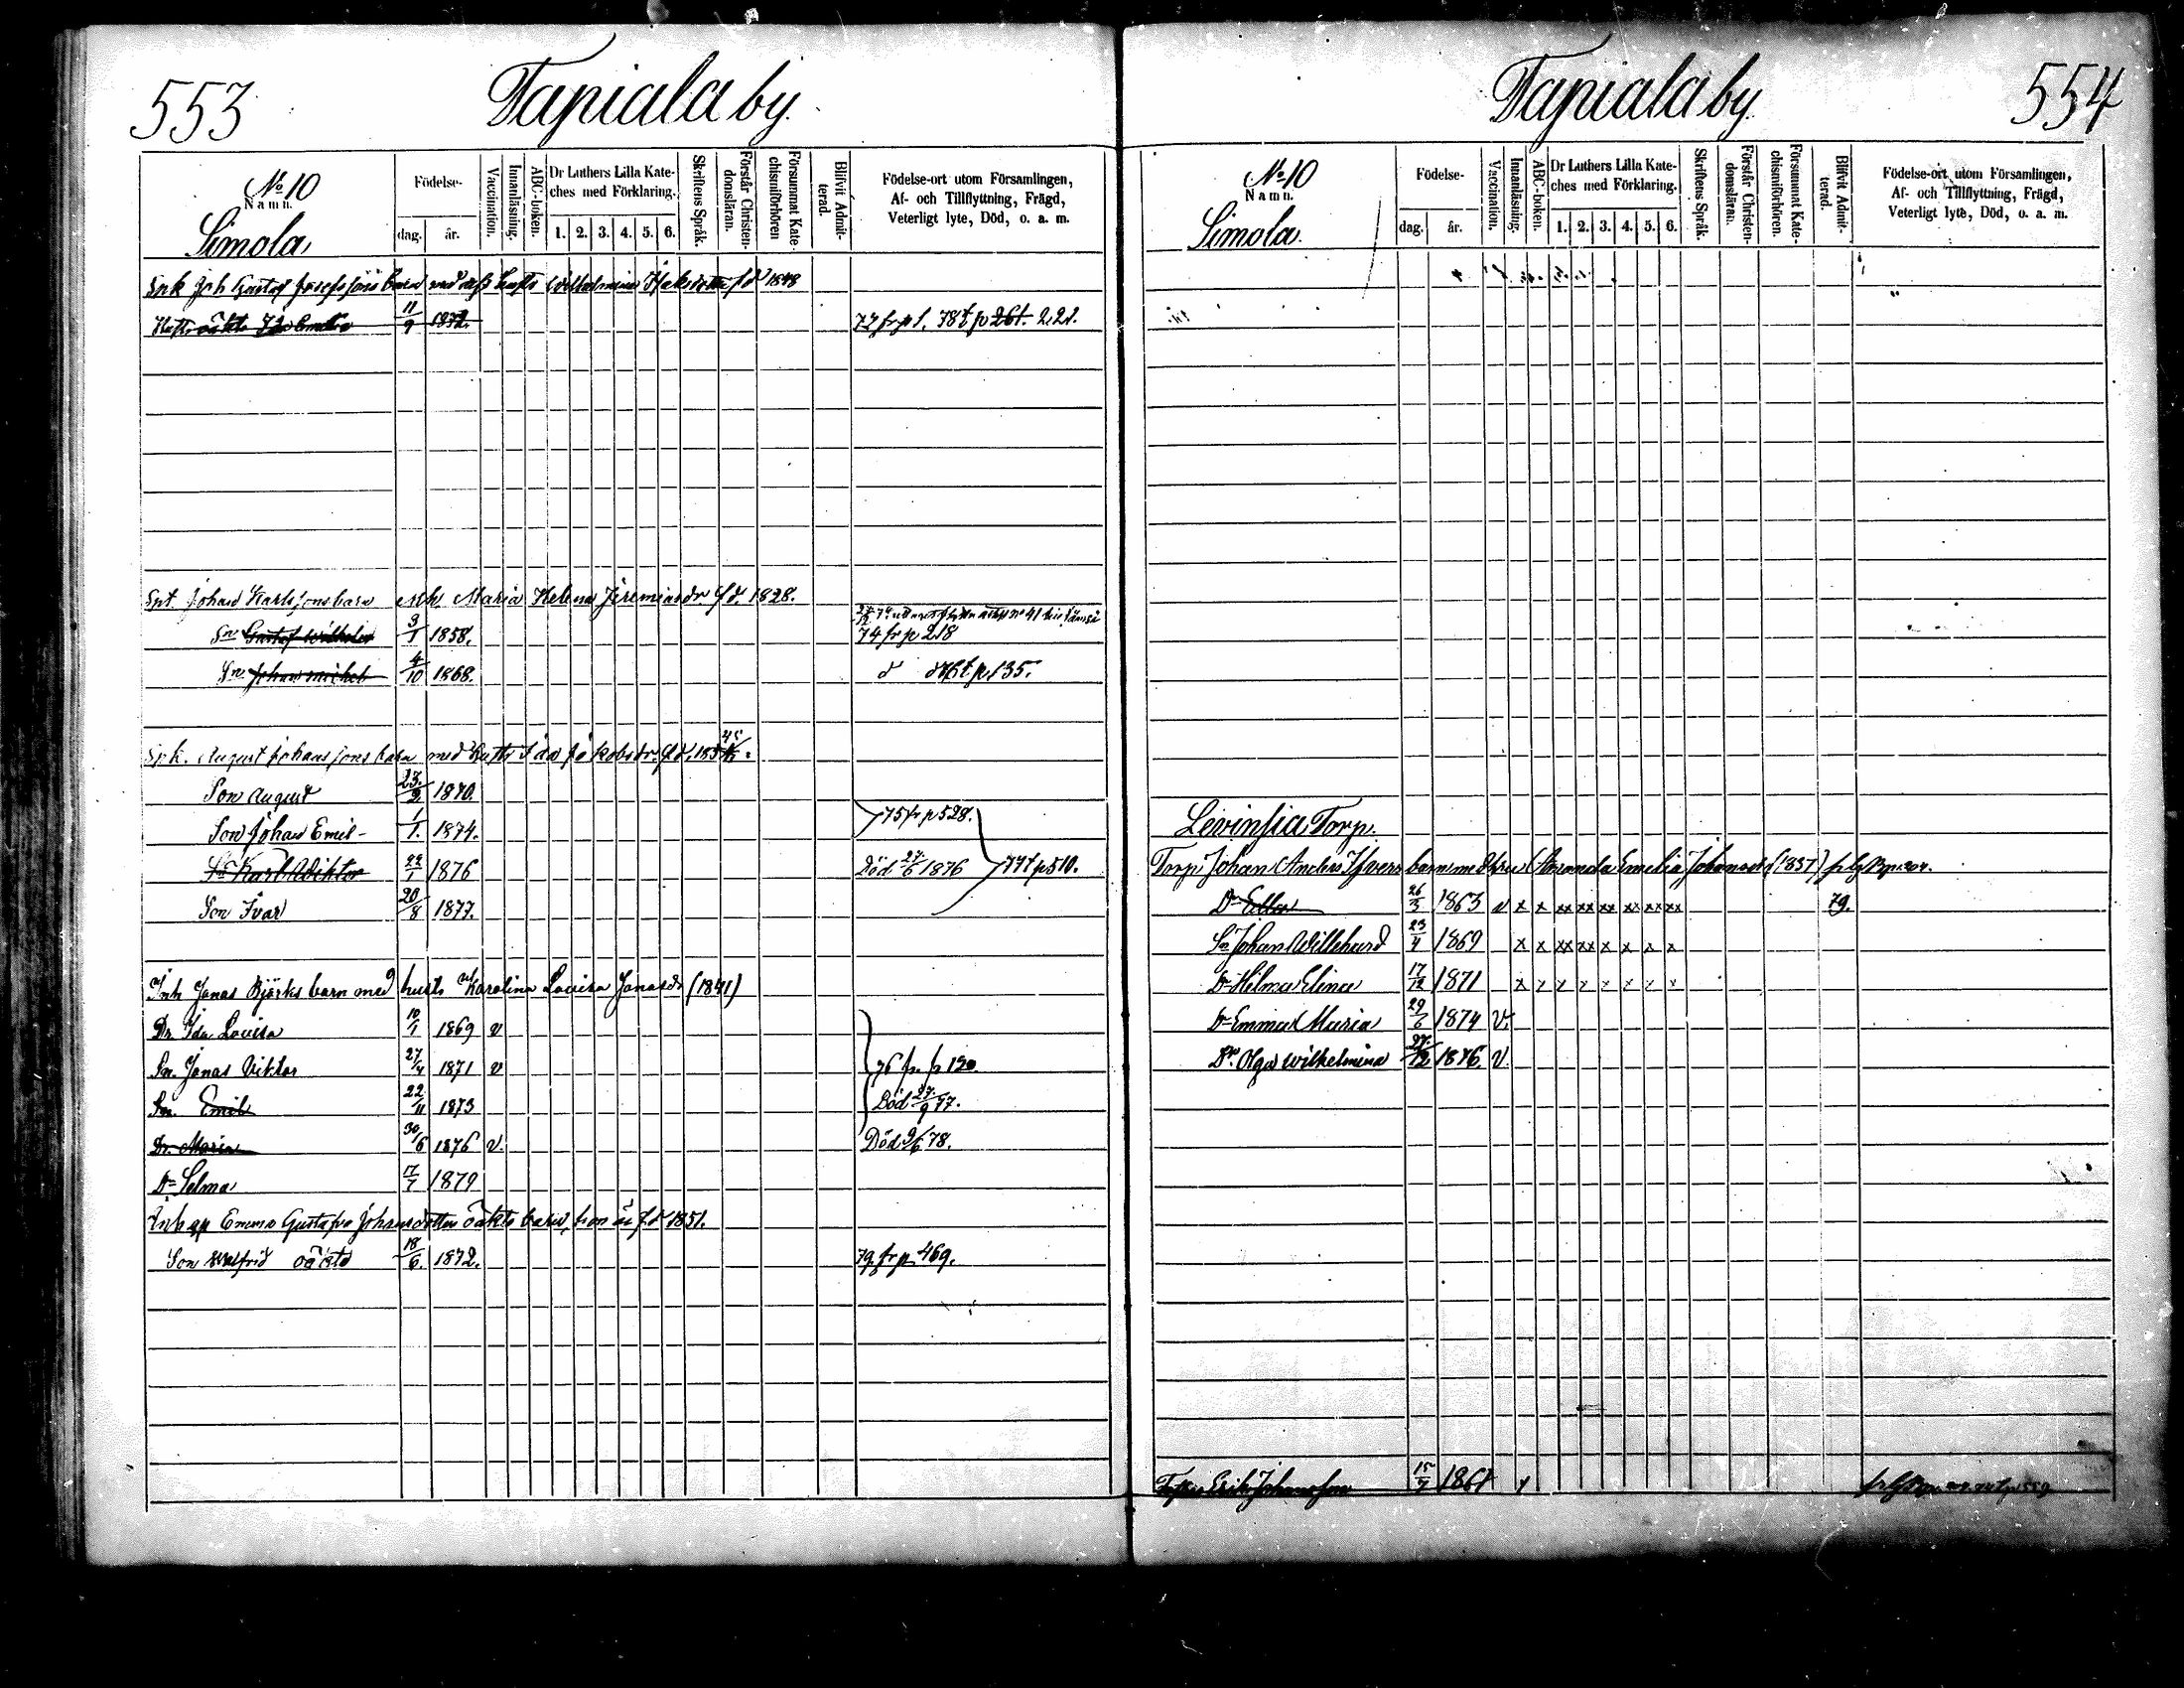 553
Tapiala by.
No 10
Namn.
Simola
Födelse-
dag. år.
Vaccination.
Innanläsning.
ABC-boken.
Dr Luthers Lilla Kate-
ches med Förklaring.
1. 2. 3. 4. 5. 6.
Skriftens Språk.
Förstår Christen-
domsläran.
Försummat Kate-
chismiförhören
Blifvit Admit-
terad.
Födelse-ort utom Församlingen,
Af- och Tillflyttning, Frägd,
Veterligt lyte, Död, o. a. m.
Joh Gustaf Josefssons barn med Wilhelmina fd 1848
oäkta 11/9 1872. 77 fr p 1. 78 t p 261. 221.
Johan Karlssons barn Maria Helena Jeremiasdr fd. 1828.
Sn Gustaf Wilhelm 3/1 1858. 74 fr p 218
Sn Johan Michel 4/10 1868. d t p. 135.
August Johanssons barn med Ida Jakobsdr. fd. 45
Son August 23/2 1870.
Son Johan Emil 1/1. 1874. 75 fr p 528.
Sn Karl Wiktor 22/1 1876 Död 27/6 1876 77 t p 510.
Son Ivar 20/8 1877.
Inh Jonas Björks barn med hust. Karolina Lovisa Jonasdr (1841)
Dr. Ida Lovisa 10/1 1869 v
Sn. Jonas Viktor 27/4 1871 v 76 fr. p 190.
Sn. Emil 22/11 1873 Död 27/9 77.
Dr. Maria 30/6 1876 v. Död 9/6 78.
Dr Selma 17/7 1879
Emma Gustafva Johansdotters oäkta barn, hon är f.d 1851.
Son Walfrid oäkta 18/6. 1872. 79 fr p 469.
Tapiala by.
554
No 10
Namn.
Simola.
Födelse-
dag. år.
Vaccination.
Innanläsning.
ABC-boken.
Dr Luthers Lilla Kate-
ches med Förklaring.
1. 2. 3. 4. 5. 6.
Skriftens Språk.
Förstår Christen-
domsläran.
Försummat Kate-
chismiförhören.
Blifvit Admit-
terad.
Födelse-ort utom Församlingen,
Af- och Tillflyttning, Frägd,
Veterligt lyte, Död, o. a. m.
Torp.
Torp Johan Anders barn med hru Amanda Emelia (1837)
Dr Ella 26/5 1863 v x x xx xx xx xx xx xx 79.
Sn Johan Willehard 23/4 1869 x x xx xx x x x x
Dr Hilma Elina 17/12 1871 x x x x x x x x
Dr Emma Maria 29/6 1874 v.
Dr. Olga Wilhelmina 27/12 1876. v.
Erik Johansson 15/7 x